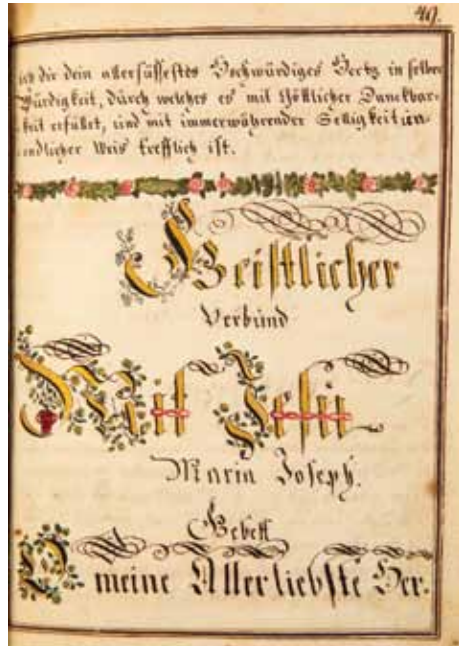 49.
ich dir dein allersüssestes Hochwürdiges Hertz in selber
Würdigkeit, dürch welches es mit Göttlicher Danckbar-
keit erfüllet, und mit immerwährender Seligkeit un-
endlicher Weis trefflich ist.
Geistlicher
Verbünd
Mit Jesu
Maria Joseph.
Gebett
O meine Allerliebste Her-